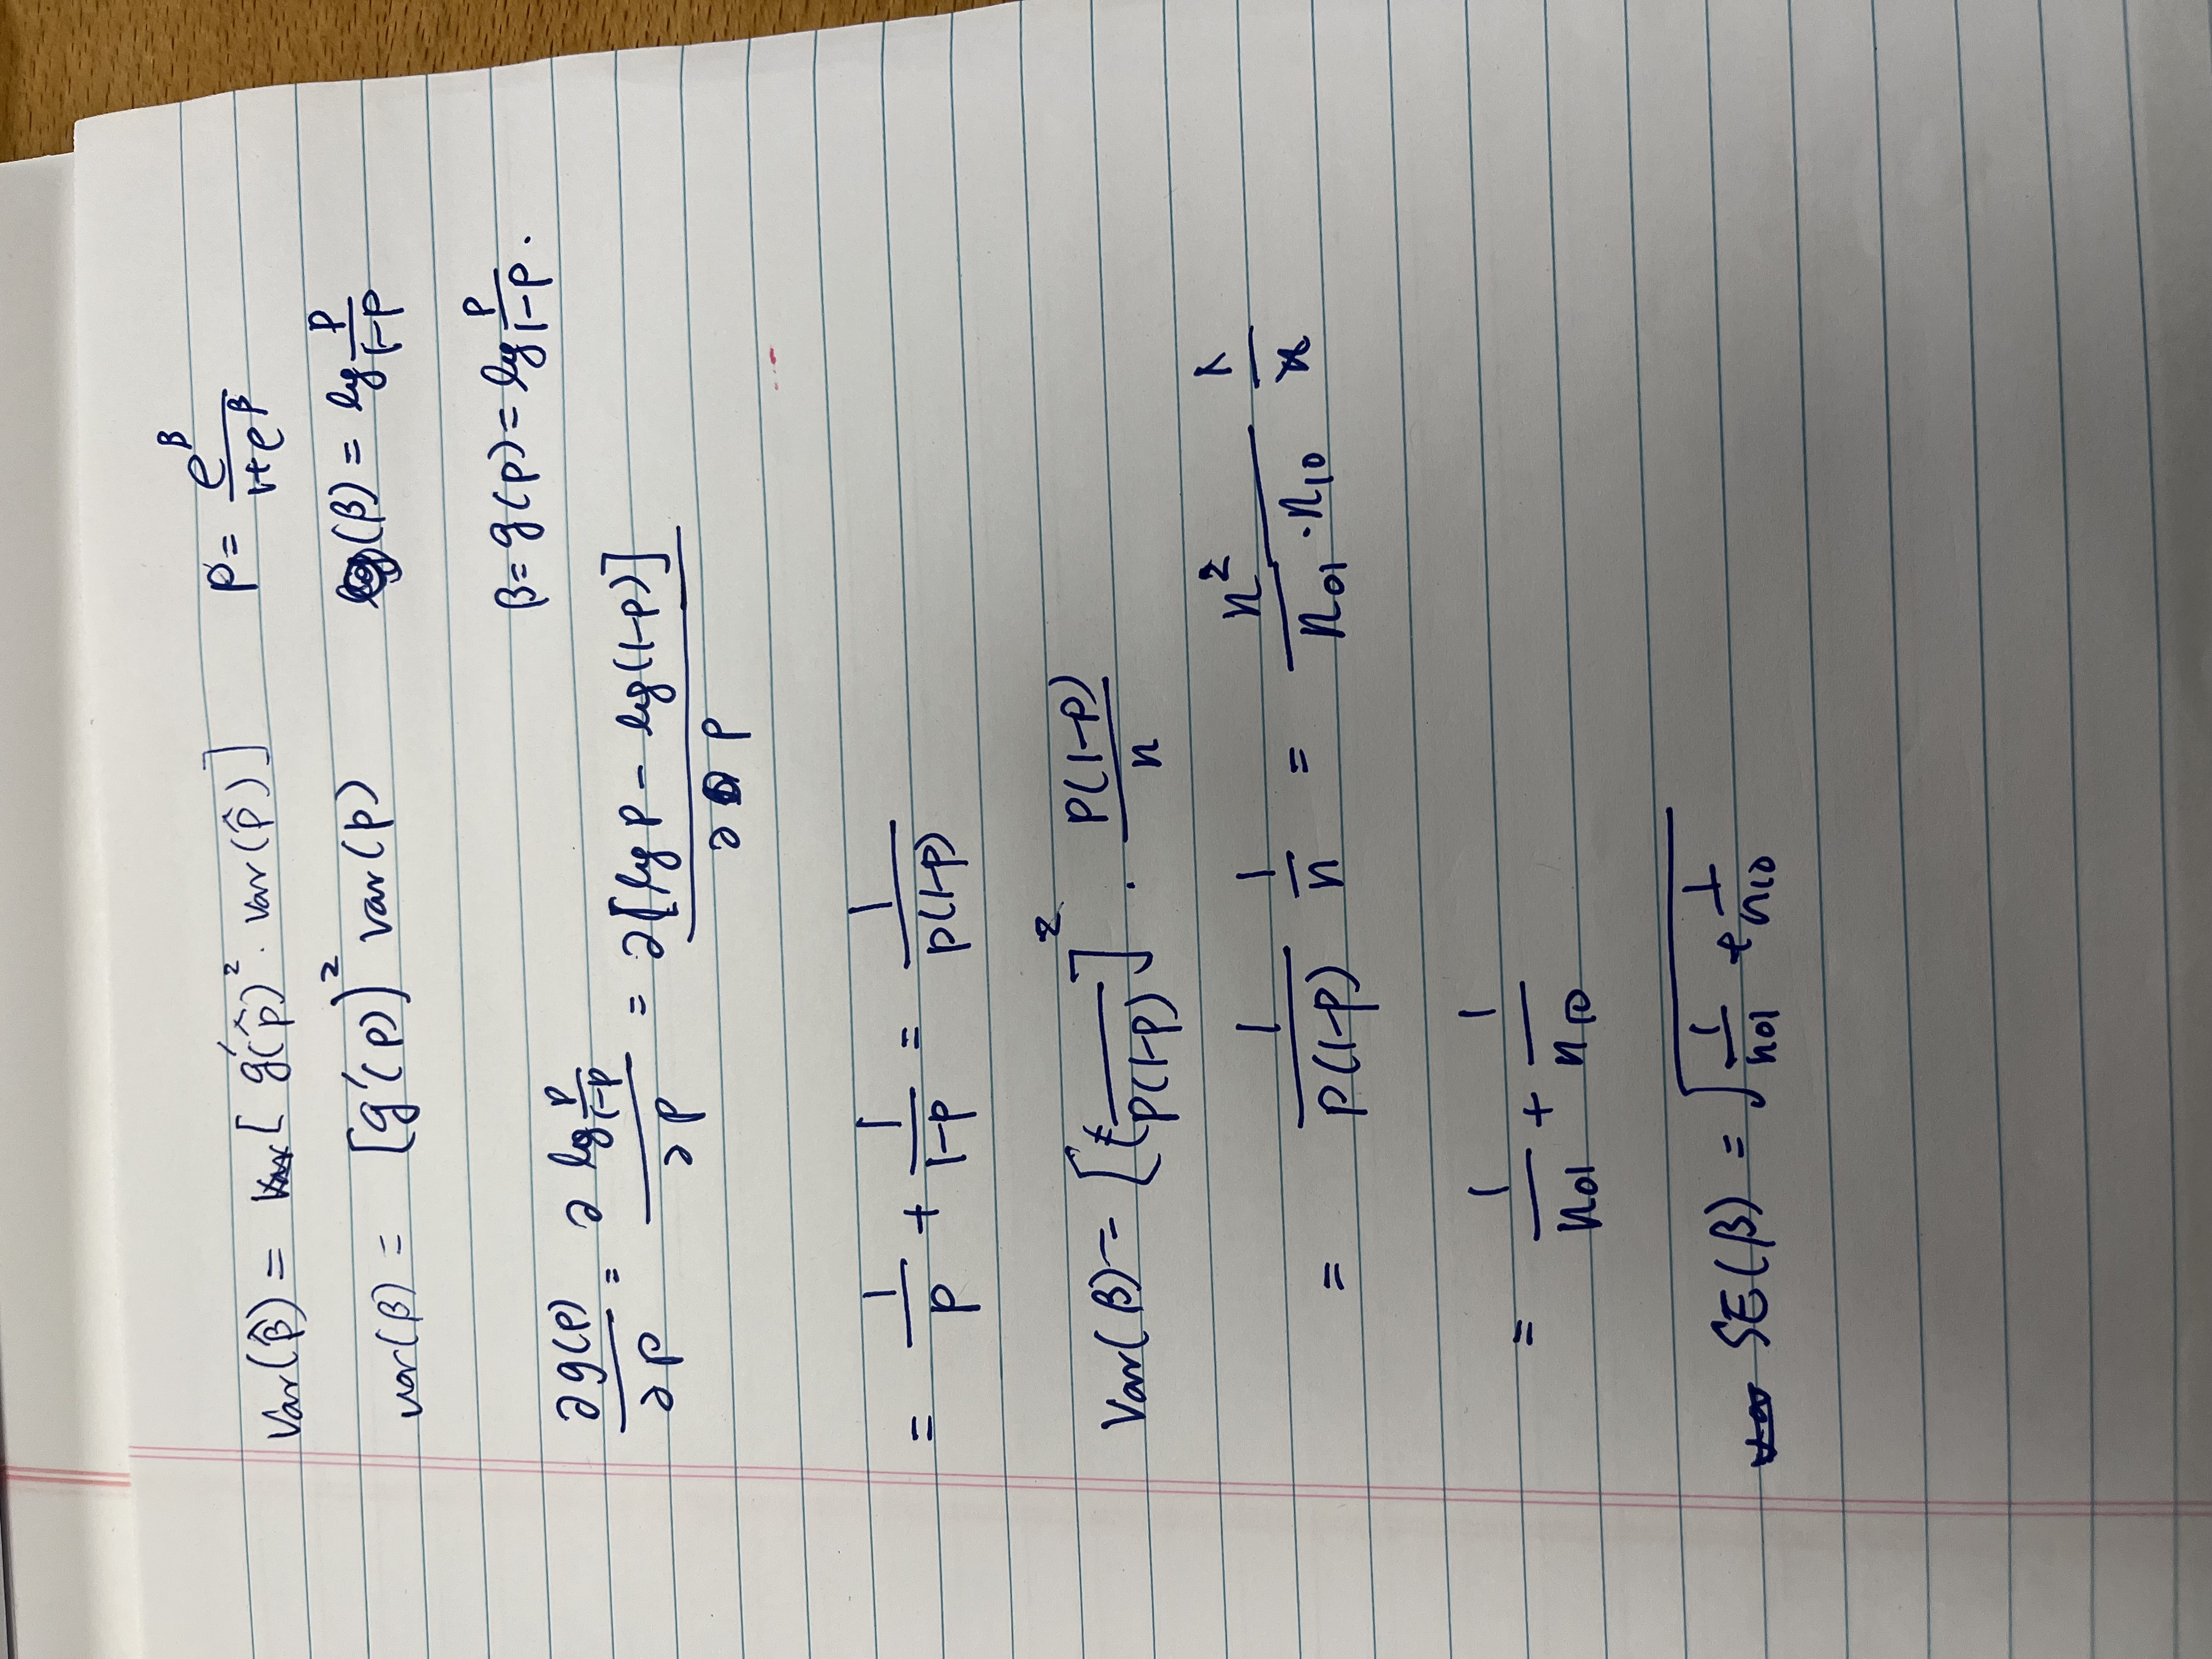 Var(β̂) = [ g'(p̂)² · var(p̂) ]   p = e^β / (1+e^β)
var(β) = [g'(p)]² var(p)   (β) = log p/(1-p)
β = g(p) = log p/(1-p) .
∂g(p)/∂p = ∂ log p/(1-p) / ∂p = ∂[log p - log(1-p)] / ∂p
= 1/p + 1/(1-p) = 1/(p(1-p))
Var(β) = [1/(p(1-p))]² · p(1-p)/n
= 1/(p(1-p)) 1/n = n²/(n01 · n10) 1/n
= 1/n01 + 1/n10
SE(β) = √(1/n01 + 1/n10)